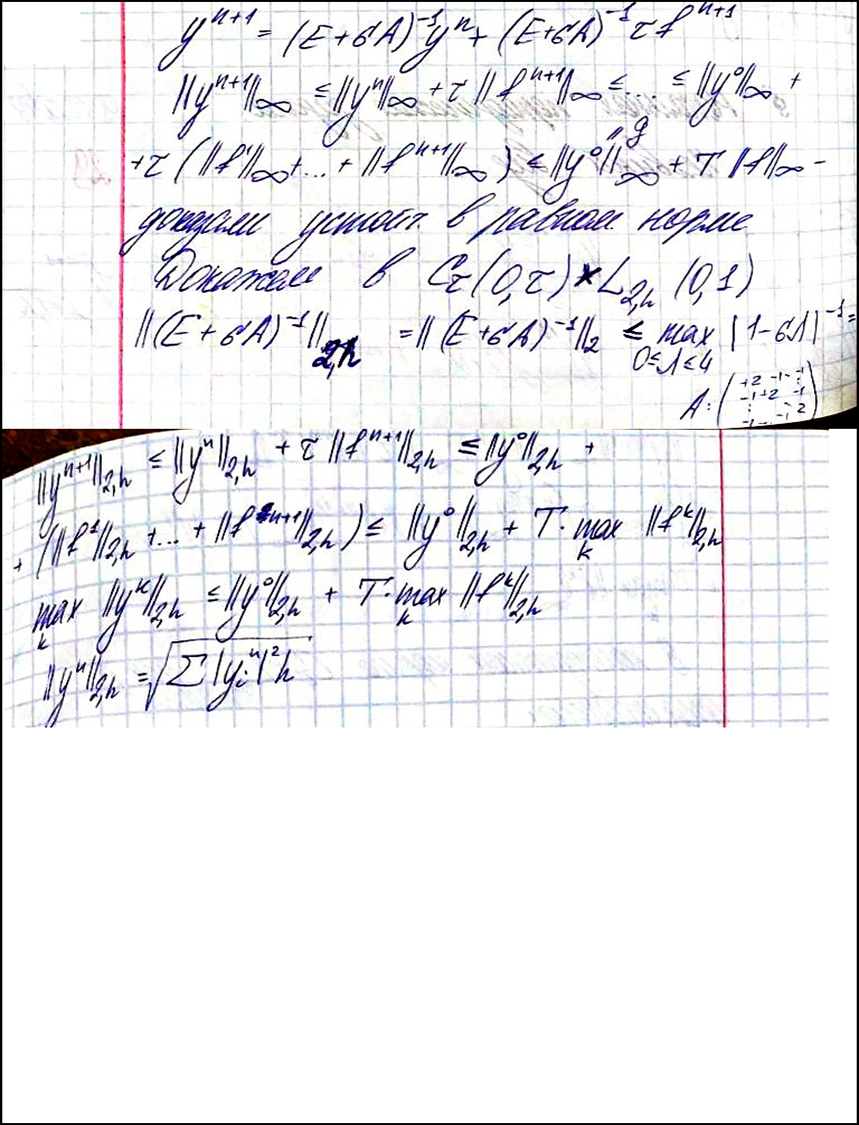 yⁿ⁺¹ = (E+σA)⁻¹yⁿ + (E+σA)⁻¹ τ fⁿ⁺¹
||yⁿ⁺¹||∞ ≤ ||yⁿ||∞ + τ ||fⁿ⁺¹||∞ ≤ ... ≤ ||y⁰||∞ +
+ τ (||f¹||∞ + ... + ||fⁿ⁺¹||∞) ≤ ||y⁰||∞ + T ||f||∞ –
" g
доказали устойч. в равном. норме
Докажем в C_τ (0, τ) × L_{2,h} (0, 1)
||(E + σA)⁻¹||_{2,h} = ||(E+σA)⁻¹||₂ ≤ max_{0≤Λ≤4} |1-σΛ|⁻¹ =
A: ( +2 -1 · -1
-1 +2 -1
: · · 2
-1 ... -1 2 )
||yⁿ⁺¹||_{2,h} ≤ ||yⁿ||_{2,h} + τ ||fⁿ⁺¹||_{2,h} ≤ ||y⁰||_{2,h} +
+ (||f¹||_{2,h} + ... + ||fⁿ⁺¹||_{2,h}) ≤ ||y⁰||_{2,h} + T · max_k ||fᵏ||_{2,h}
max_k ||yᵏ||_{2,h} ≤ ||y⁰||_{2,h} + T · max_k ||fᵏ||_{2,h}
||yⁿ||_{2,h} = √(Σ |yᵢⁿ|² h)